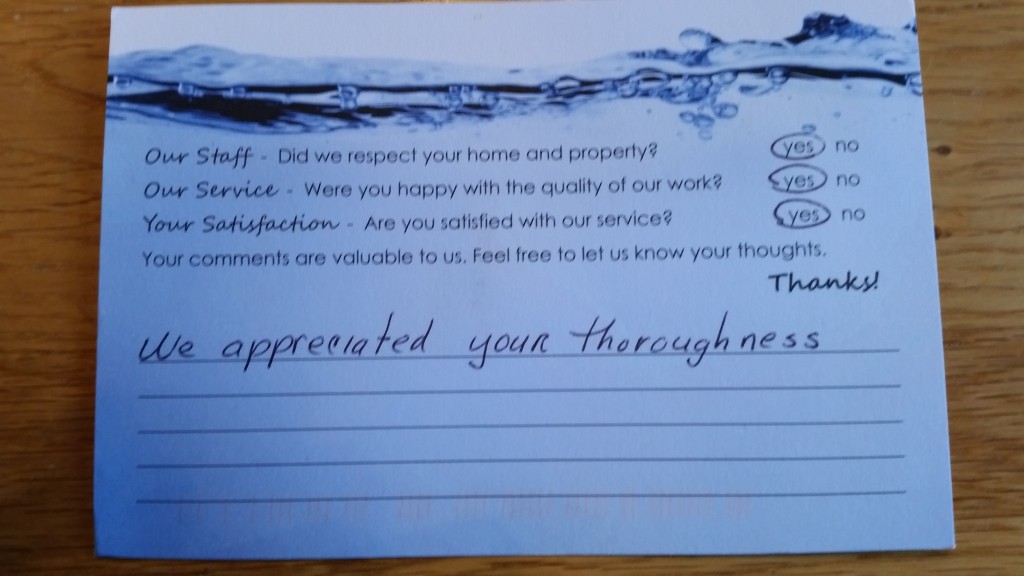 Our Staff - Did we respect your home and property? yes no
Our Service - Were you happy with the quality of our work? yes no
Your Satisfaction - Are you satisfied with our service? yes no
Your comments are valuable to us. Feel free to let us know your thoughts.
Thanks!
We appreciated your thoroughness